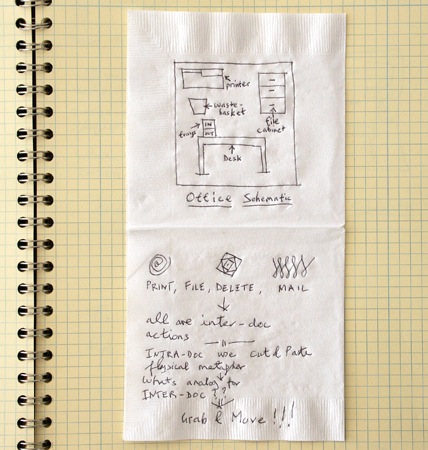 printer
waste-
basket
file
cabinet
trays
IN
OUT
Desk
Office Schematic
@
PRINT, FILE, DELETE, MAIL
all are inter-doc
actions
INTRA-DOC we cut & Paste
physical metaphor
Whats analog for
INTER-DOC ??
Grab & Move !!!